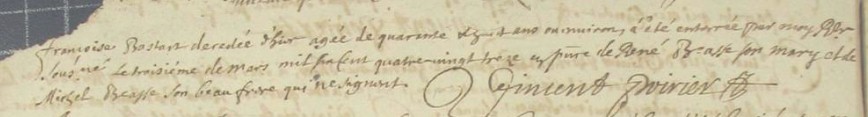 françoise Bostart decedée d'hier agée de quarante et ans ou environ, a été enterrée par moy
sous. né le troisiéme de mars mil six cent quatre-vingt treze en pñce de René Beasse son mary et de
Michel Beasse son beau frere qui ne signent. Vincent Poirier